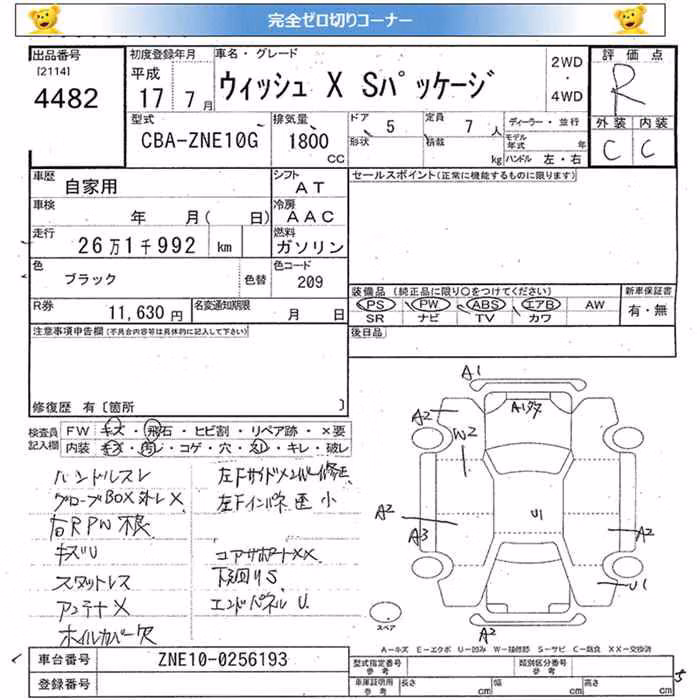 完全ゼロ切りコーナー
出品番号
[2114]
4482
初度登録年月
平成
17 7月
車名・グレード
ウィッシュ X Sパッケージ
2WD
・
4WD
評価点
R
外装 内装
C C
型式
CBA-ZNE10G
排気量
1800
CC
ドア 5
形状
定員 7 人
積載 kg
ディーラー・並行
モデル年式 年
ハンドル 左・右
車歴
自家用
シフト
AT
車検
年 月( 日)
冷房
AAC
走行
26万1千992 km
燃料
ガソリン
色
ブラック
色替
色コード
209
R券
11,630円
名変通知期限
月 日
セールスポイント(正常に機能するものに限ります)
装備品 (純正品に限り○をつけてください)
新車保証書
PS PW ABS エアB AW
SR ナビ TV カワ
有・無
後日品
注意事項申告欄(不具合内容等は具体的に記入して下さい)
修復歴 有〔箇所 〕
検査員記入欄
FW キズ・飛石・ヒビ割・リペア跡・×要
内装 キズ・汚レ・コゲ・穴・スレ・キレ・破レ
ハンドルスレ
グローブBOX外レX
右RPW不根
キズU
スタットレス
アンテナX
ホイルカバー欠
左Fサイドメンバー修正
左Fインパネ 小
コアサポートXX
下回りS
エンドパネルU
A1
A2
A1
W2
A2
A3
U1
A2
U1
A2
スペア
A−キズ E−エクボ U−凹み W−補修跡 S−サビ C−腐食 XX−交換済
車台番号
ZNE10-0256193
登録番号
型式指定番号
参考
類別区分番号
参考
車庫証明用
参考
長さ cm 幅 cm 高さ cm